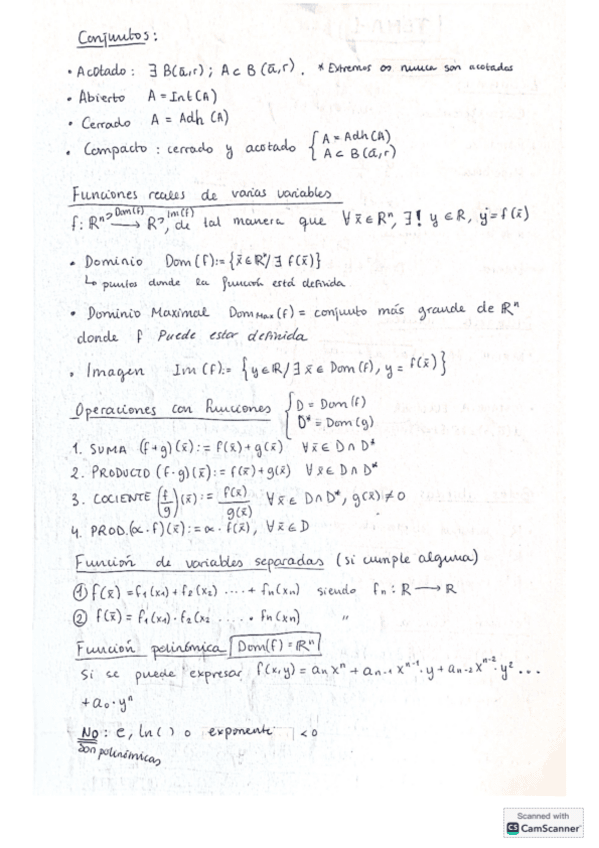 Conjuntos:
• Acotado: ∃ B(ā,r); A ⊂ B(ā,r). * Extremos ∞ nunca son acotados
• Abierto A = Int(A)
• Cerrado A = Adh(A)
• Compacto: cerrado y acotado { A = Adh(A)
A ⊂ B(ā,r)
Funciones reales de varias variables
f: Rⁿ ⊃ Dom(f) → R ⊃ Im(f), de tal manera que ∀ x̄ ∈ Rⁿ, ∃! y ∈ R, y = f(x̄)
• Dominio Dom(f) := {x̄ ∈ Rⁿ / ∃ f(x̄)}
↳ puntos donde la función está definida
• Dominio Maximal Dom Max (f) = conjunto más grande de Rⁿ
donde f Puede estar definida
• Imagen Im(f) := {y ∈ R / ∃ x̄ ∈ Dom(f), y = f(x̄)}
Operaciones con funciones { D = Dom(f)
D* = Dom(g)
1. SUMA (f+g)(x̄) := f(x̄)+g(x̄) ∀ x̄ ∈ D ∩ D*
2. PRODUCTO (f·g)(x̄) := f(x̄)+g(x̄) ∀ x̄ ∈ D ∩ D*
3. COCIENTE (f/g)(x̄) := f(x̄)/g(x̄) ∀ x̄ ∈ D ∩ D*, g(x̄) ≠ 0
4. PROD. (α·f)(x̄) := α·f(x̄), ∀ x̄ ∈ D
Función de variables separadas (si cumple alguna)
① f(x̄) = f₁(x₁) + f₂(x₂) .... + fn(xn) siendo fn: R → R
② f(x̄) = f₁(x₁) · f₂(x₂ .... · fn(xn) "
Función polinómica Dom(f) = Rⁿ
Si se puede expresar f(x,y) = aₙxⁿ + aₙ₋₁xⁿ⁻¹·y + aₙ₋₂xⁿ⁻²·y² ...
+ a₀·yⁿ
NO: e, ln( ) o exponente < 0
son polinómicas
Scanned with
CS CamScanner